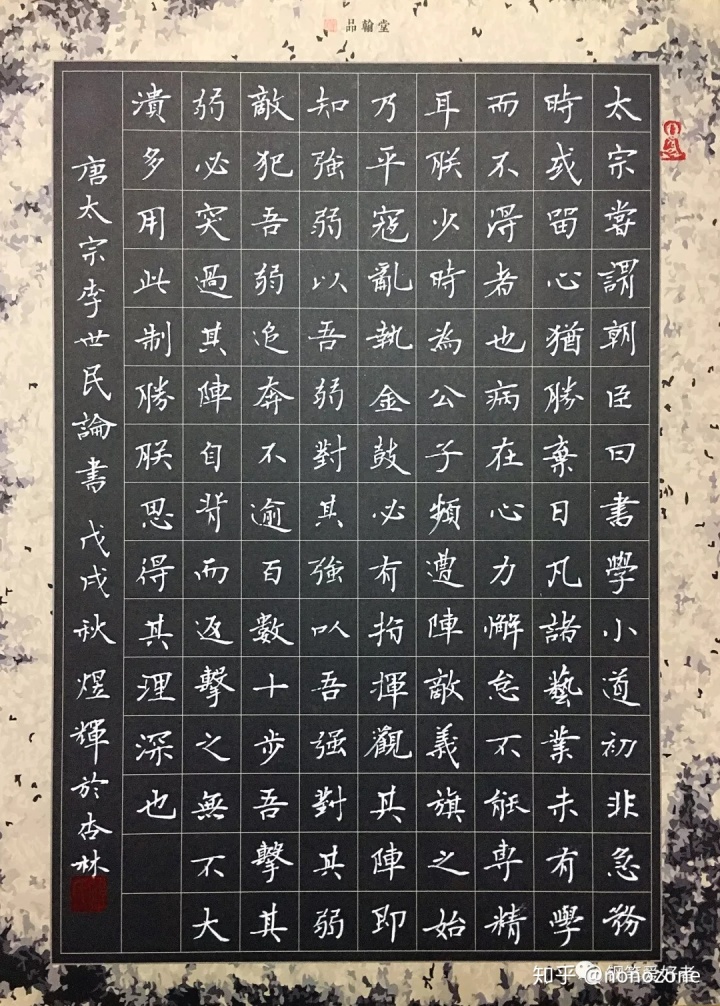 品翰堂
太宗嘗謂朝臣曰書學小道初非急務
時或留心猶勝棄日凡諸藝業未有學
而不得者也病在心力懈怠不能專精
耳朕少時為公子頻遭陣敵義旗之始
乃平寇亂執金鼓必有指揮觀其陣即
知強弱以吾弱對其強以吾强對其弱
敵犯吾弱追奔不逾百數十步吾擊其
弱必突過其陣自背而返擊之無不大
潰多用此制勝朕思得其理深也
唐太宗李世民論書 戊戌秋 煜輝於杏林
知乎 @nonozone